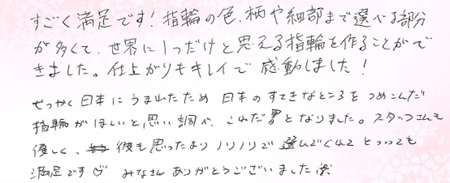 すごく満足です！指輪の色、柄や細部まで選べる部分
が多くて、世界に1つだけと思える指輪を作ることがで
きました。仕上がりもキレイで感動しました！
せっかく日本にうまれたため 日本のすてきなところをつめこんだ
指輪がほしいと思い調べ、これだ!!となりました。スタッフさんも
優しく、彼も思ったよりノリノリで選んでくれてとっっても
満足です♡ みなさんありがとうございました